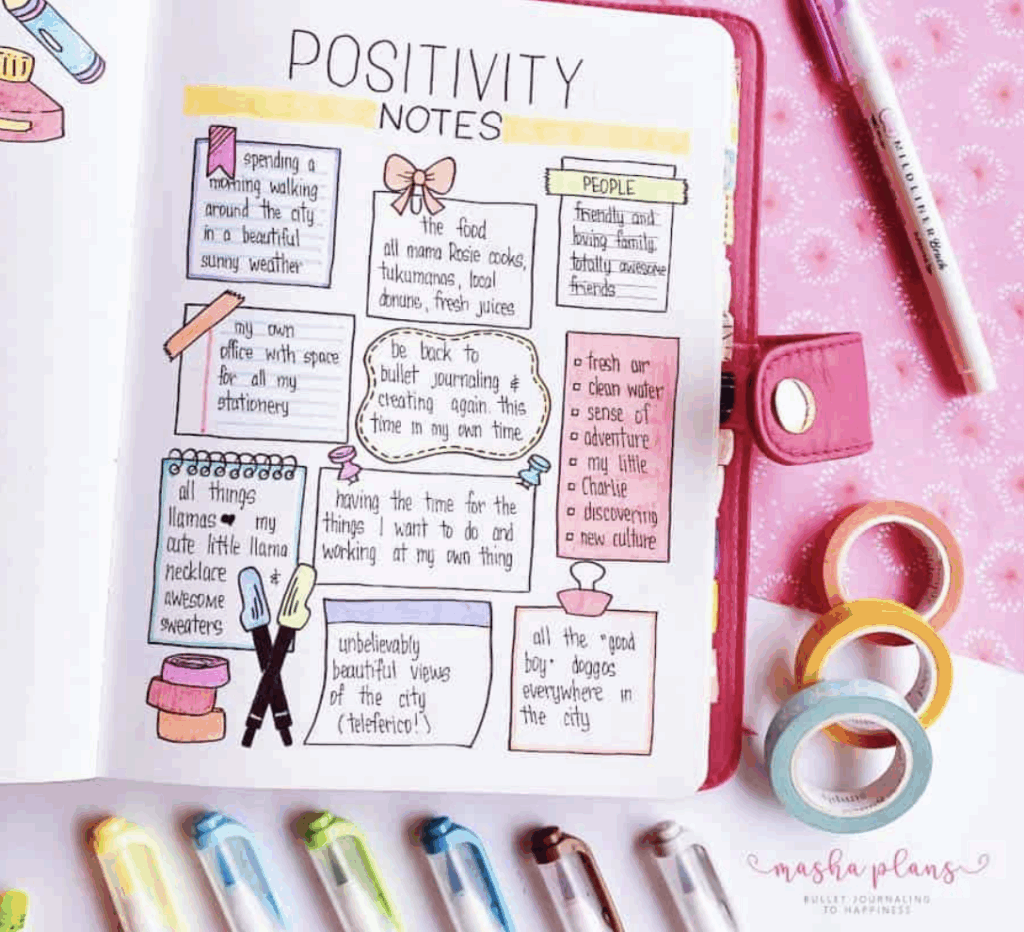 POSITIVITY
NOTES
spending a
morning walking
around the city
in a beautiful
sunny weather
the food
all mama Rosie cooks,
tukumanas, local
donuns, fresh juices
PEOPLE
friendly and
loving family,
totally awesome
friends
my own
office with space
for all my
stationery
be back to
bullet journaling &
creating again. this
time in my own time
fresh air
clean water
sense of
adventure
my little
Charlie
discovering
new culture
all things
llamas ♥ my
cute little llama
necklace &
awesome
sweaters
having the time for the
things I want to do and
working at my own thing
unbelievably
beautiful views
of the city
(teleferico!)
all the "good
boy" doggos
everywhere in
the city
MILDLINER Brush
masha plans
BULLET JOURNALING
TO HAPPINESS